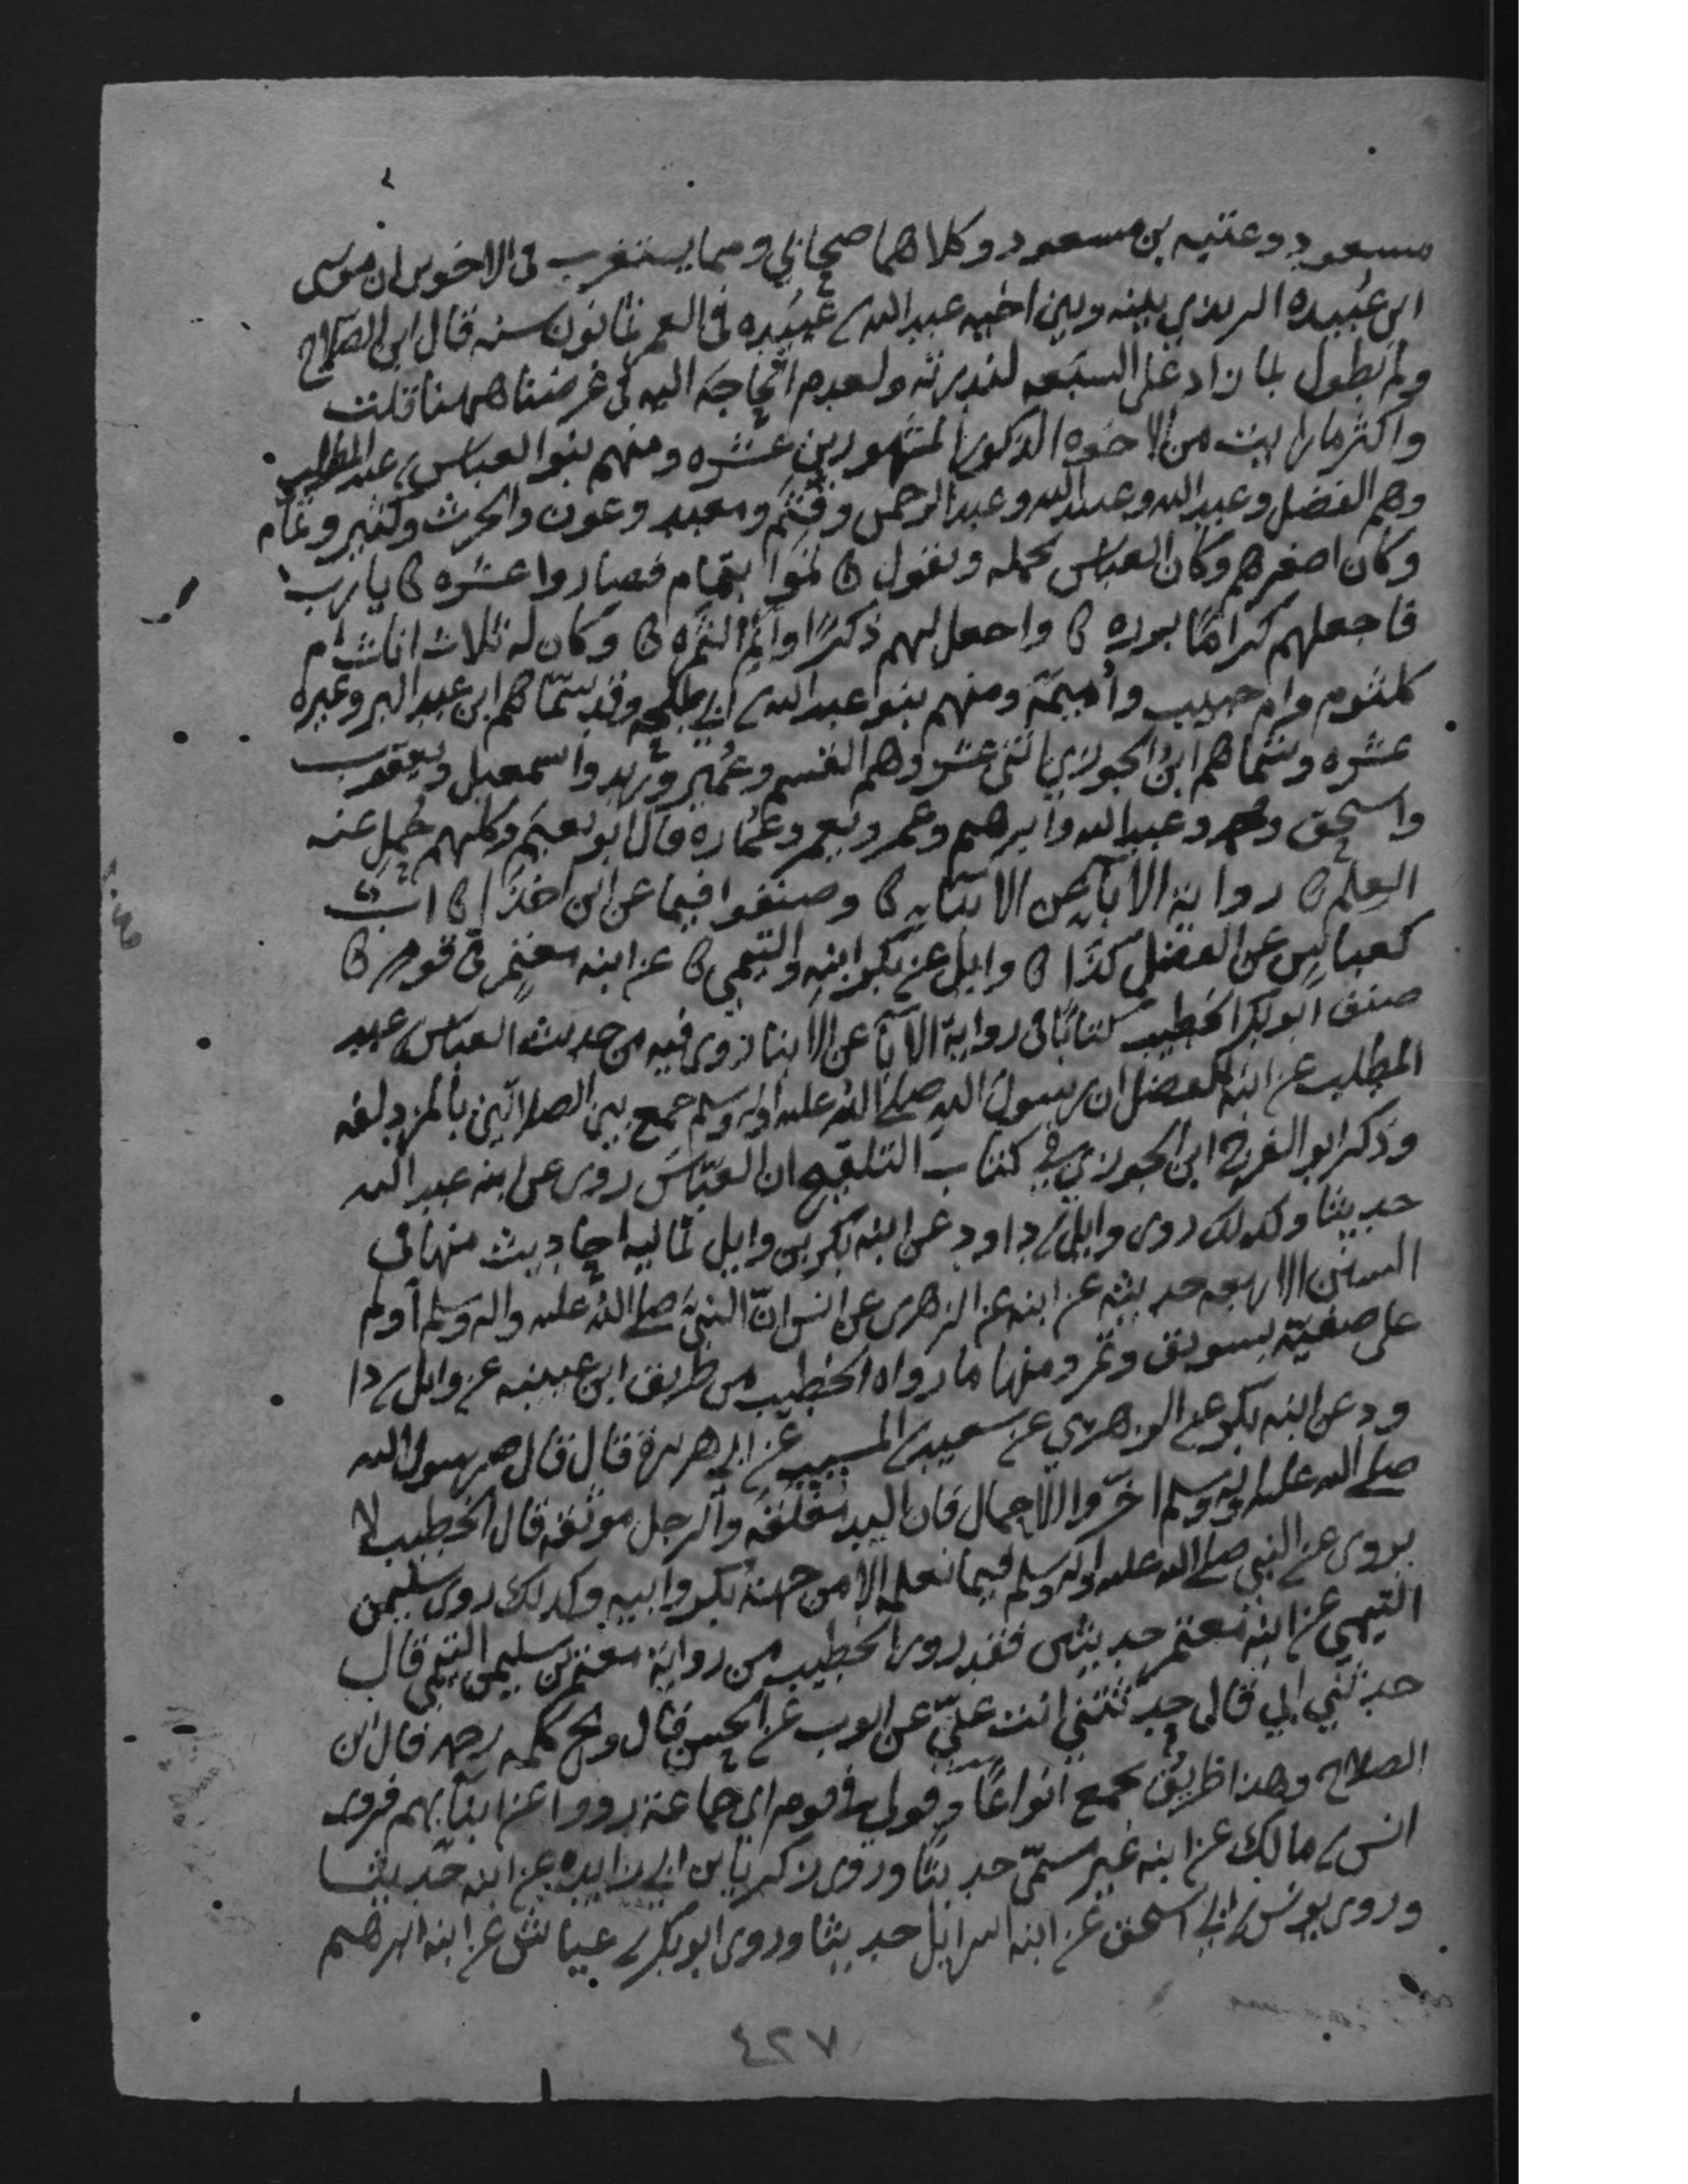 مسعود وعتبه بن مسعود وكلاهما صحابي ومما يستغرب في الاخوين ان موسى
ابن عبيده الربذي بينه وبين اخيه عبد الله بن عبيده في العمر ثمانون سنه قال ابن الصلاح
ولم نطول بما زاد على السبعه لندرته ولعدم الحاجه اليه في غرضنا ههنا قلت
واكثر ما رايت من الاخوه الذكور المشهورين عشره ومنهم بنو العباس بن عبد المطلب
وهم الفضل وعبد الله وعبيد الله وعبد الرحمن وقثم ومعبد وعون والحرث وكثير وتمام
وكان اصغرهم وكان العباس يحمله ويقول تموا بتمام فصاروا عشره يا رب
فاجعلهم كراما برره واجعل لهم ذكرا وانم الثمره وكان له ثلاث اناث ام
كلثوم وام حبيب واميمة ومنهم بنو عبد الله بن ابي طلحه وقد سماهم ابن عبد البر وغيره
عشره وسماهم ابن الجوزي اثني عشر وهم القسم وعمير وزيد واسمعيل ويعقوب
واسحق ومحمد وعبد الله وابرهيم وعمر ويعمر وعماره قال ابو نعيم وكلهم حمل عنه
العلم رواية الآباء عن الابناء وصنفوا فيما عن ابن اخذا اب
كعباس عن الفضل كذا وايل عن بكر ابنه والتيمي عن ابنه معتمر في قوم
صنف ابو بكر الخطيب كتابا في رواية الآبا عن الابنا روى فيه من حديث العباس بن عبد
المطلب عن ابنه الفضل ان رسول الله صلى الله عليه واله وسلم جمع بين الصلاتين بالمزدلفه
وذكر ابو الفرج ابن الجوزي في كتاب التلقيح ان العباس روى عن ابنه عبد الله
حديثا وكذلك روى وايل بن داود عن ابنه بكر بن وايل ثمانيه احاديث منها في
السنن الاربعه حديثه عن ابنه عن الزهرى عن انس ان النبي صلى الله عليه واله وسلم اولم
على صفية بسويق وتمر ومنها ما رواه الخطيب من طريق ابن عيينه عن وايل بن دا
ود عن ابنه بكر عن الزهري عن سعيد بن المسيب عن ابي هريرة قال قال رسول الله
صلى الله عليه واله وسلم اخروا الاحمال فان اليد مغلقه والرجل موثقه قال الخطيب لا
يروى عن النبي صلى الله عليه واله وسلم فيما نعلمه الا من جهة بكر وابيه وكذلك روى سليمن
التيمي عن ابنه معتمر حديثين فقد روى الخطيب من رواية معتمر بن سليمن التيمي قال
حدثني ابي قال حدثتني انت عني عن ايوب عن الحسن قال ويح كلمه رحمه قال ابن
الصلاح وهذا ظريف يجمع انواعا وقولي في قوم اي جماعة رووا عن ابنائهم فروى
انس بن مالك عن ابنه غير مسمى حديثا وروى زكريا بن ابي زايده عن ابنه حديثا
وروى يونس بن ابي اسحق عن ابنه اسرايل حديثا وروى ابو بكر بن عياش عن ابنه ابرهيم
٤٢٧